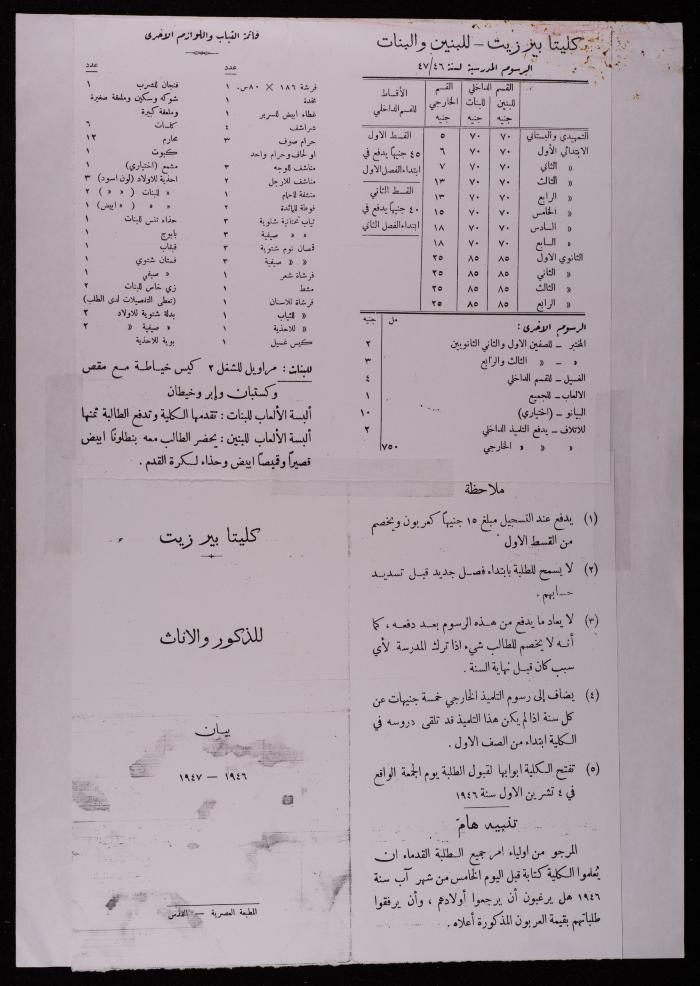 كليتا بير زيت – للبنين والبنات
الرسوم المدرسية لسنة ٤٧/٤٦
القسم الداخلي القسم الأقساط
للبنين للبنات الخارجي للقسم الداخلي
جنيه جنيه جنيه
التمهيدي والبستاني ٧٠ ٧٠ ٥ القسط الاول
الابتدائي الأول ٧٠ ٧٠ ٦ ٤٥ جنيهاً يدفع في
« الثاني ٧٠ ٧٠ ٧ ابتداء الفصل الاول
« الثالث ٧٠ ٧٠ ١٣ القسط الثاني
« الرابع ٧٠ ٧٠ ١٣ ٤٠ جنيهاً يدفع في
« الخامس ٧٠ ٧٠ ١٥ ابتداء الفصل الثاني
« السادس ٧٠ ٧٠ ١٨
« السابع ٧٠ ٧٠ ١٨
الثانوي الاول ٨٥ ٨٥ ٢٥
« الثاني ٨٥ ٨٥ ٢٥
« الثالث ٨٥ ٨٥ ٢٥
« الرابع ٨٥ ٨٥ ٢٥
الرسوم الاخرى : مل جنيه
المختبر – للصفين الاول والثاني الثانويين ٢
« – « الثالث والرابع ٣
الغسيل – للقسم الداخلي ٤
الالعاب – للجميع ١
البيانو – (اختياري) ١٠
للاتلاف – يدفع التلميذ الداخلي ٢
« « « الخارجي ٧٥٠
ملاحظة
(١) يدفع عند التسجيل مبلغ ١٥ جنيهاً كعربون ويخصم
من القسط الاول
(٢) لا يسمح للطلبة بابتداء فصل جديد قبل تسديد
حسابهم .
(٣) لا يعاد ما يدفع من هذه الرسوم بعد دفعه ، كما
أنه لا يخصم للطالب شيء اذا ترك المدرسة لأي
سبب كان قبل نهاية السنة .
(٤) يضاف إلى رسوم التلميذ الخارجي خمسة جنيهات عن
كل سنة اذا لم يكن هذا التلميذ قد تلقى دروسه في
الكلية ابتداء من الصف الاول .
(٥) تفتح الكلية ابوابها لقبول الطلبة يوم الجمعة الواقع
في ٤ تشرين الاول سنة ١٩٤٦
تنبيه هام
المرجو من اولياء امر جميع الطلبة القدماء ان
يُعلموا الكلية كتابة قبل اليوم الخامس من شهر آب سنة
١٩٤٦ هل يرغبون أن يرجعوا أولادهم ، وأن يرفقوا
طلباتهم بقيمة العربون المذكورة أعلاه .
قائمة الثياب واللوازم الاخرى
عدد
فرشة ١٨٦ × ٨٠ س. ١
مخدة ١
غطاء ابيض للسرير ١
شراشف ٤
حرام صوف ٣
او لحاف وحرام واحد
مناشف للوجه ٣
مناشف للارجل ٢
منشفة للحمام ١
فوطة للمائدة ٢
ثياب تحتانية شتوية ٣
« « صيفية ٣
قمصان نوم شتوية ٣
« « صيفية ٣
فرشاة شعر ١
مشط ١
فرشاة للاسنان ١
« للثياب ١
« للاحذية ١
كيس غسيل ١
عدد
فنجان للشرب ١
شوكه وسكين وملعقة صغيرة
وملعقة كبيرة ١
كلسات ٦
محارم ١٢
كبوت ١
مشمع (اختياري) ١
احذية للاولاد (لون اسود) ٣
« للبنات ( « « ) ٢
« « ( « ابيض) ١
حذاء تنس للبنات ١
بابوج ١
قبقاب ١
فستان شتوي ١
« صيفي ١
زي خاص للبنات ٢
(تعطى التفصيلات لدى الطلب)
بدلة شتوية للاولاد ٢
« صيفية « ٢
بوية للاحذية
للبنات : مراويل للشغل ٢ كيس خياطة مع مقص
وكستبان وإبر وخيطان
ألبسة الألعاب للبنات : تقدمها الكلية وتدفع الطالبة ثمنها
ألبسة الألعاب للبنين : يحضر الطالب معه بنطلوناً ابيض
قصيراً وقميصاً ابيض وحذاء لكرة القدم .
كليتا بير زيت
للذكور والاناث
بيان
١٩٤٦ – ١٩٤٧
المطبعة العصرية – القدس